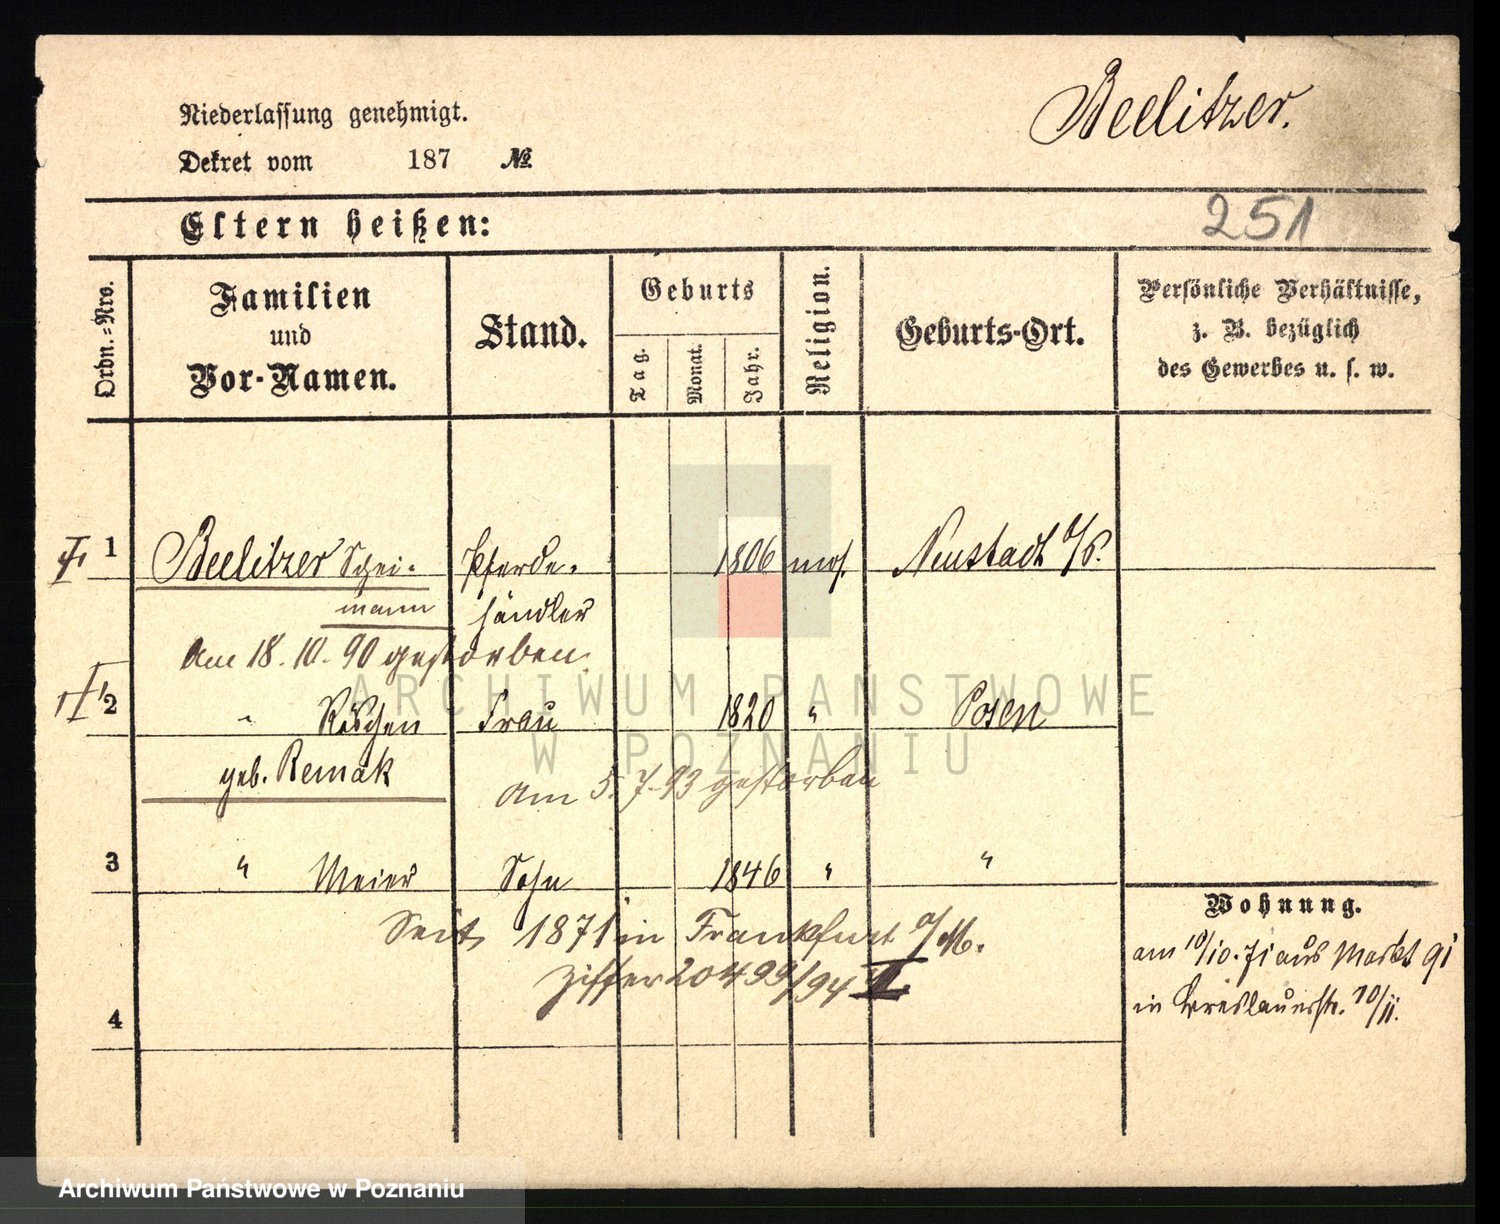 Niederlassung genehmigt.
Dekret vom 187 №
Beelitzer.
Eltern heißen:
251
Ordn.=Nro.
Familien
und
Vor-Namen.
Stand.
Geburts
Tag.
Monat.
Jahr.
Religion.
Geburts-Ort.
Persönliche Verhältnisse,
z. B. bezüglich
des Gewerbes u. s. w.
1 Beelitzer Schei- Pferde- 1806 mos. Neustadt
mann händler
Am 18. 10. 90 gestorben.
2 " Röschen Frau 1820 " Posen
geb. Remak
Am 5. 7. 93 gestorben
3 " Meier Sohn 1846 " "
Seit 1871 in Frankfurt a/M.
Ziffer 20499/94
4
Wohnung.
am 10/10. 71 aus Markt 91
in Breslauerstr. 10/11.
ARCHIWUM PAŃSTWOWE
W POZNANIU
Archiwum Państwowe w Poznaniu